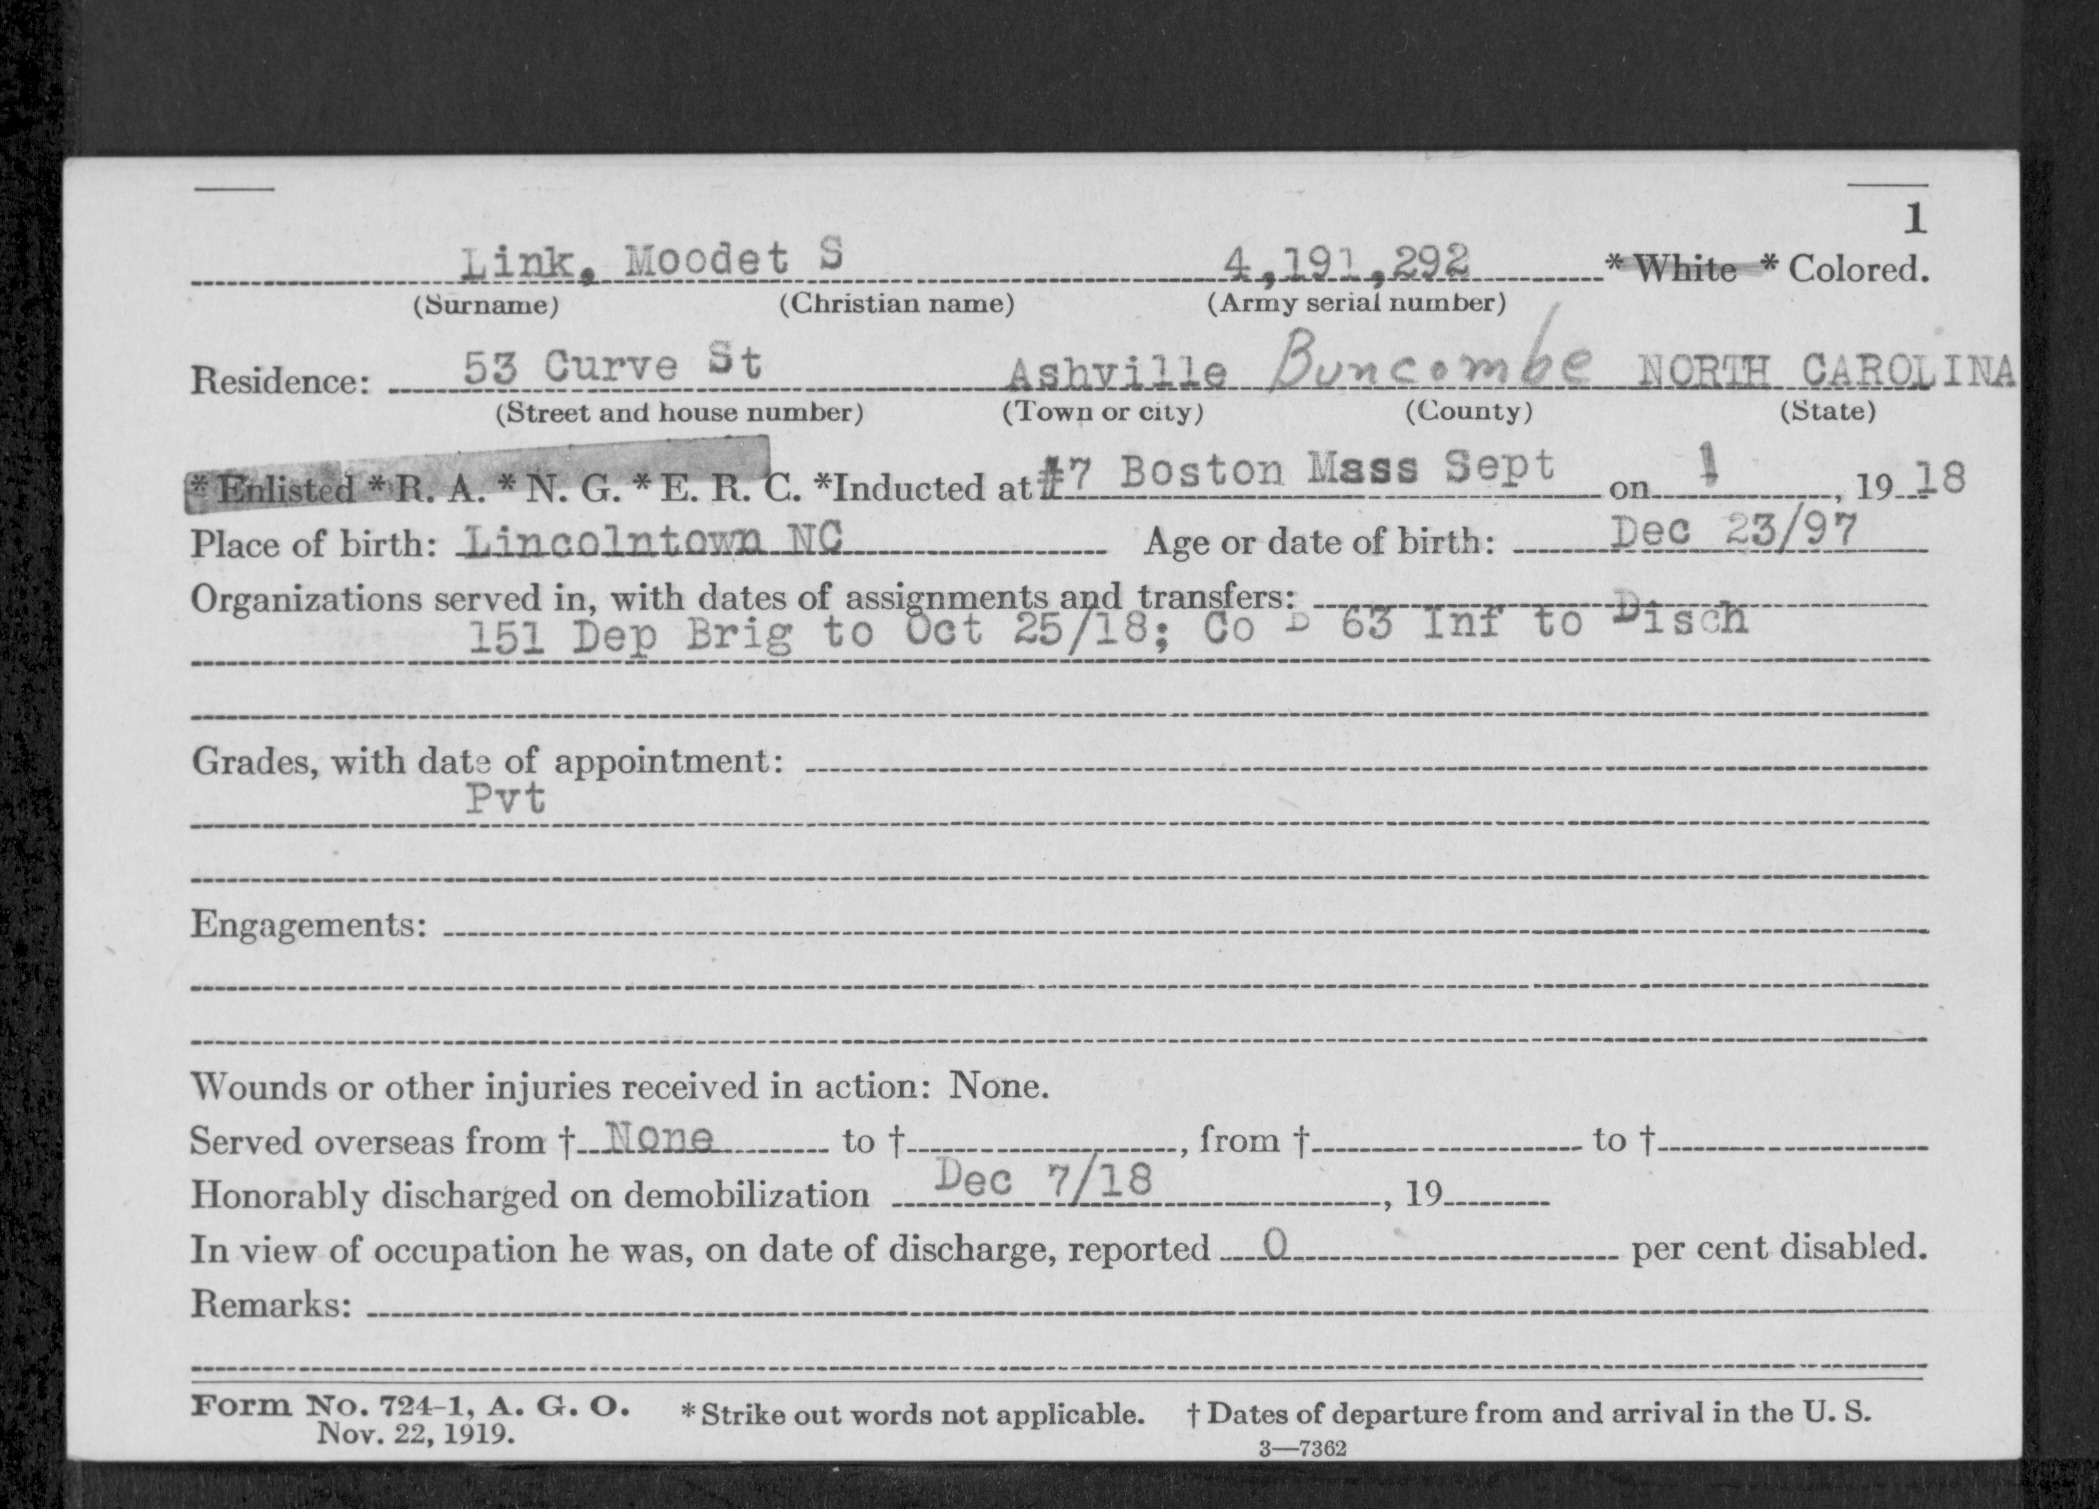 1
Link, Moodet S 4,191,292 * White * Colored.
(Surname) (Christian name) (Army serial number)
Residence: 53 Curve St Ashville Buncombe NORTH CAROLINA
(Street and house number) (Town or city) (County) (State)
* Enlisted * R. A. * N. G. * E. R. C. *Inducted at #7 Boston Mass Sept on 1, 1918
Place of birth: Lincolntown NC Age or date of birth: Dec 23/97
Organizations served in, with dates of assignments and transfers:
151 Dep Brig to Oct 25/18; Co D 63 Inf to Disch
Grades, with date of appointment:
Pvt
Engagements:
Wounds or other injuries received in action: None.
Served overseas from † None to †, from † to †
Honorably discharged on demobilization Dec 7/18, 19
In view of occupation he was, on date of discharge, reported 0 per cent disabled.
Remarks:
Form No. 724-1, A. G. O. * Strike out words not applicable. † Dates of departure from and arrival in the U. S.
Nov. 22, 1919. 3—7362